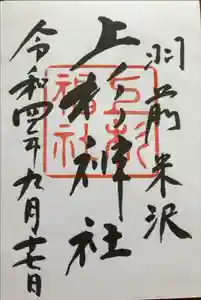 羽前米沢
上杉神社
上杉
神社
令和四年九月十七日